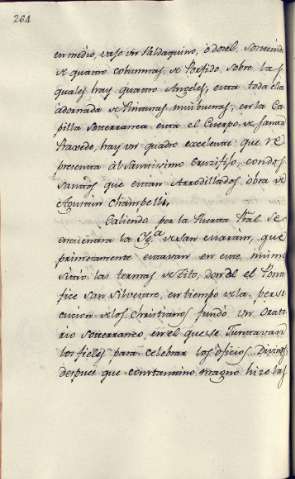 264
en medio, vaso un Valdaquino, ò dosel, sostenido
de quatro columnas, de Porfido, sobre las
quales hay quatro Angeles, esta toda ella
adornada de Pinturas mui buenas, en la Ca-
pilla Soterranea esta el Cuerpo, de santa
Praxedo, hay un quadro excelente que re
presenta àl santissimo Cruzifijo, con dos
santas que estan Arrodilladas, obra de
Agustin Champelli.
Saliendo por la Puerta Pral se
encuentra la Yg.ª de san Martin, que
primeramente estavan en este, mismo
sitio las termas de Tito, donde el Pon
fice san Silvestro, en tiempo de la, perse
cucion de los Christianos fundò un Orato
rio soterraneo, en el que se Juntavan
los fieles, para celebrar los oficios Divinos,
despues que constantino, magno hizo las